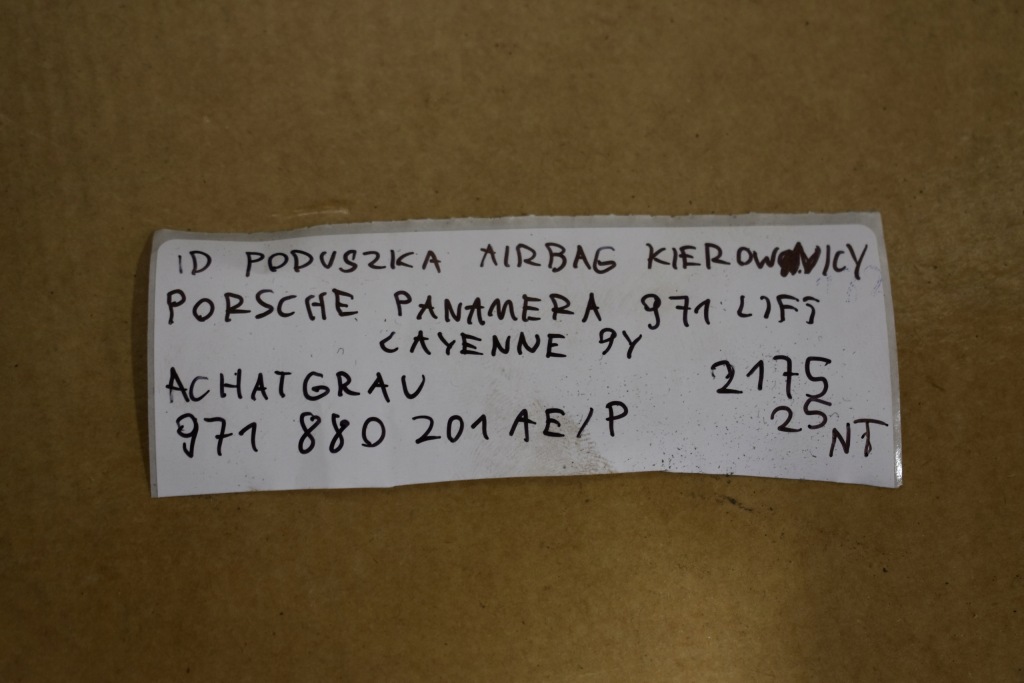 ID PODUSZKA AIRBAG KIEROWNICY
PORSCHE PANAMERA 971 LIFT
CAYENNE 9Y
ACHATGRAU 2175
971 880 201 AE/P 25 NT